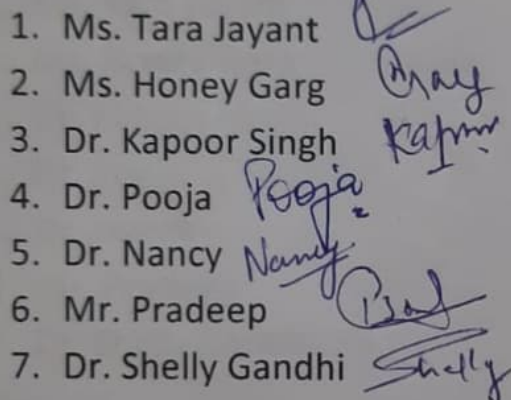 1. Ms. Tara Jayant
2. Ms. Honey Garg
3. Dr. Kapoor Singh Kapoor
4. Dr. Pooja Pooja
5. Dr. Nancy Nancy
6. Mr. Pradeep
7. Dr. Shelly Gandhi Shelly